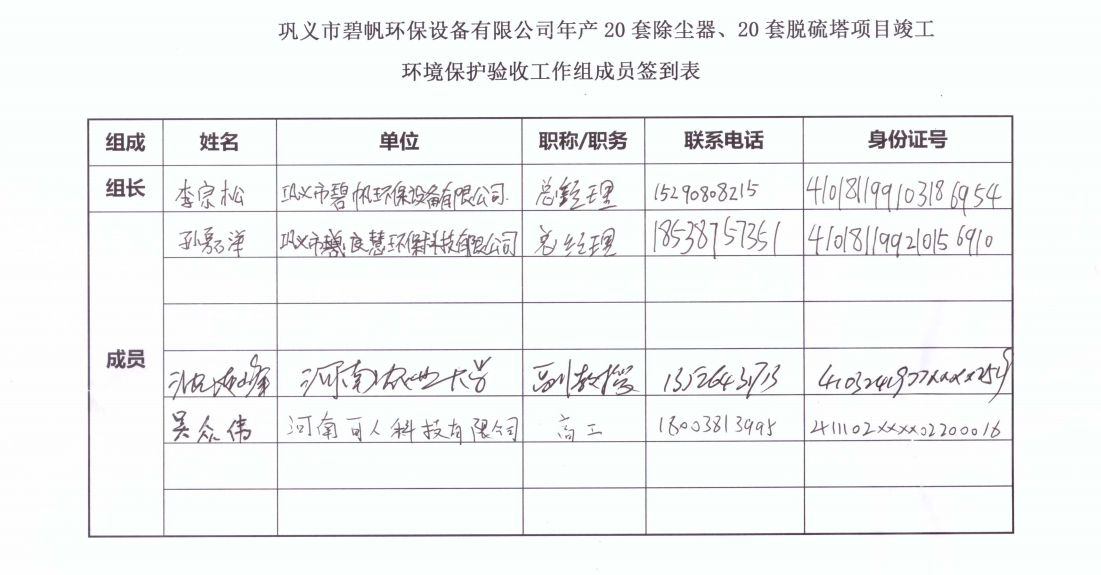 巩义市碧帆环保设备有限公司年产 20 套除尘器、20 套脱硫塔项目竣工
环境保护验收工作组成员签到表
组成 姓名 单位 职称/职务 联系电话 身份证号
组长 李宗松 巩义市碧帆环保设备有限公司 总经理 15290808215 410181199103186954
成员
孙磊洋 巩义市 慧环保科技有限公司 总经理 18538757351 410181199210156910
河南农业大学 副教授
吴众伟 河南可人科技有限公司 高工 18003813995 411102xxxx02200016